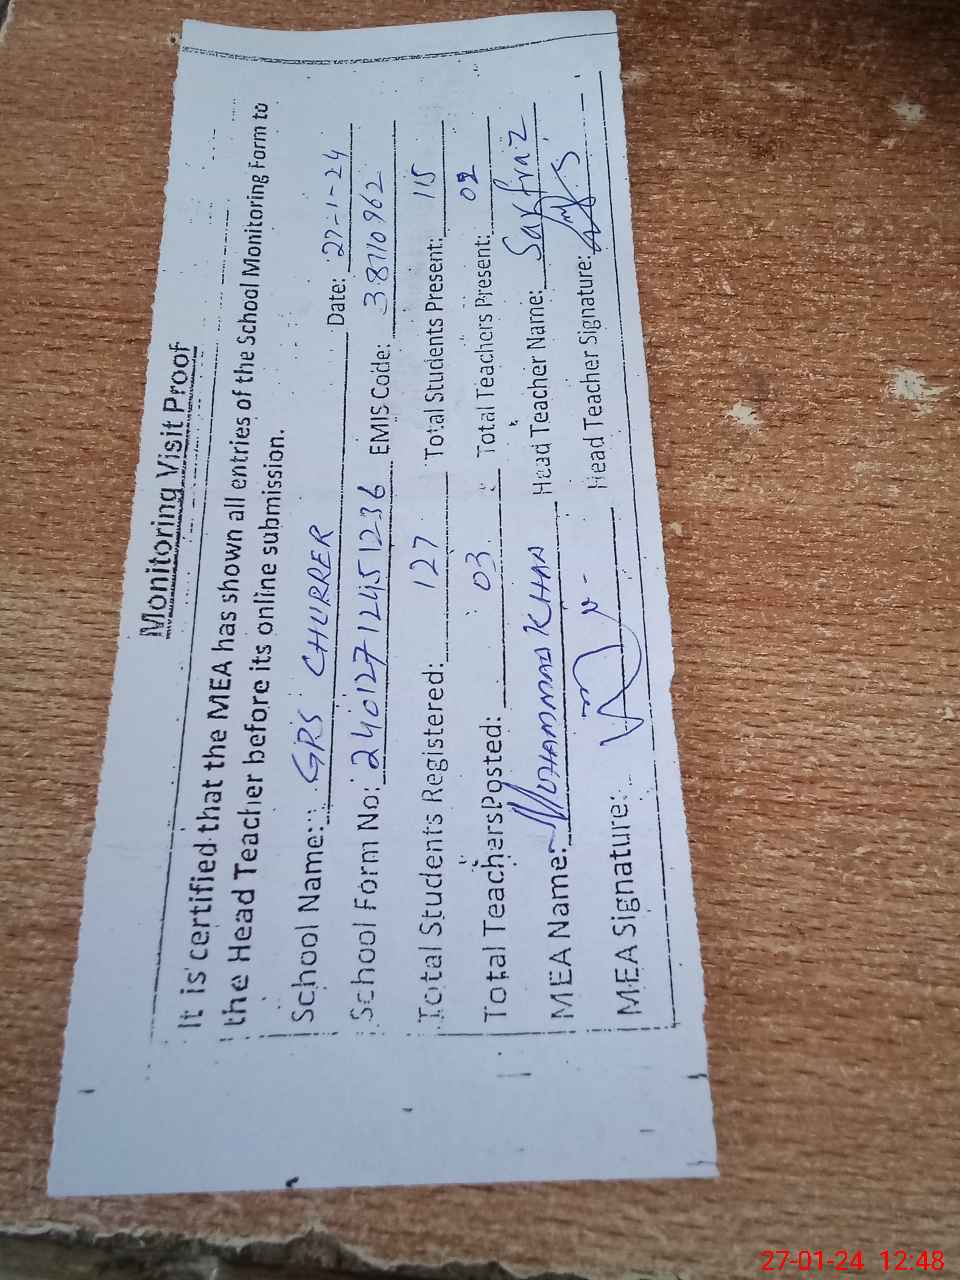 Monitoring Visit Proof
It is certified that the MEA has shown all entries of the School Monitoring Form to
the Head Teacher before its online submission.
School Name: GRS CHURRER Date: 27-1-24
School Form No: 240127121451236 EMIS Code: 38710962
Total Students Registered: 127 Total Students Present: 115
Total TeachersPosted: 03 Total Teachers Present: 02
MEA Name: MUHAMMAD KHAN Head Teacher Name: Sarfraz
MEA Signature: Head Teacher Signature:
27-01-24 12:48